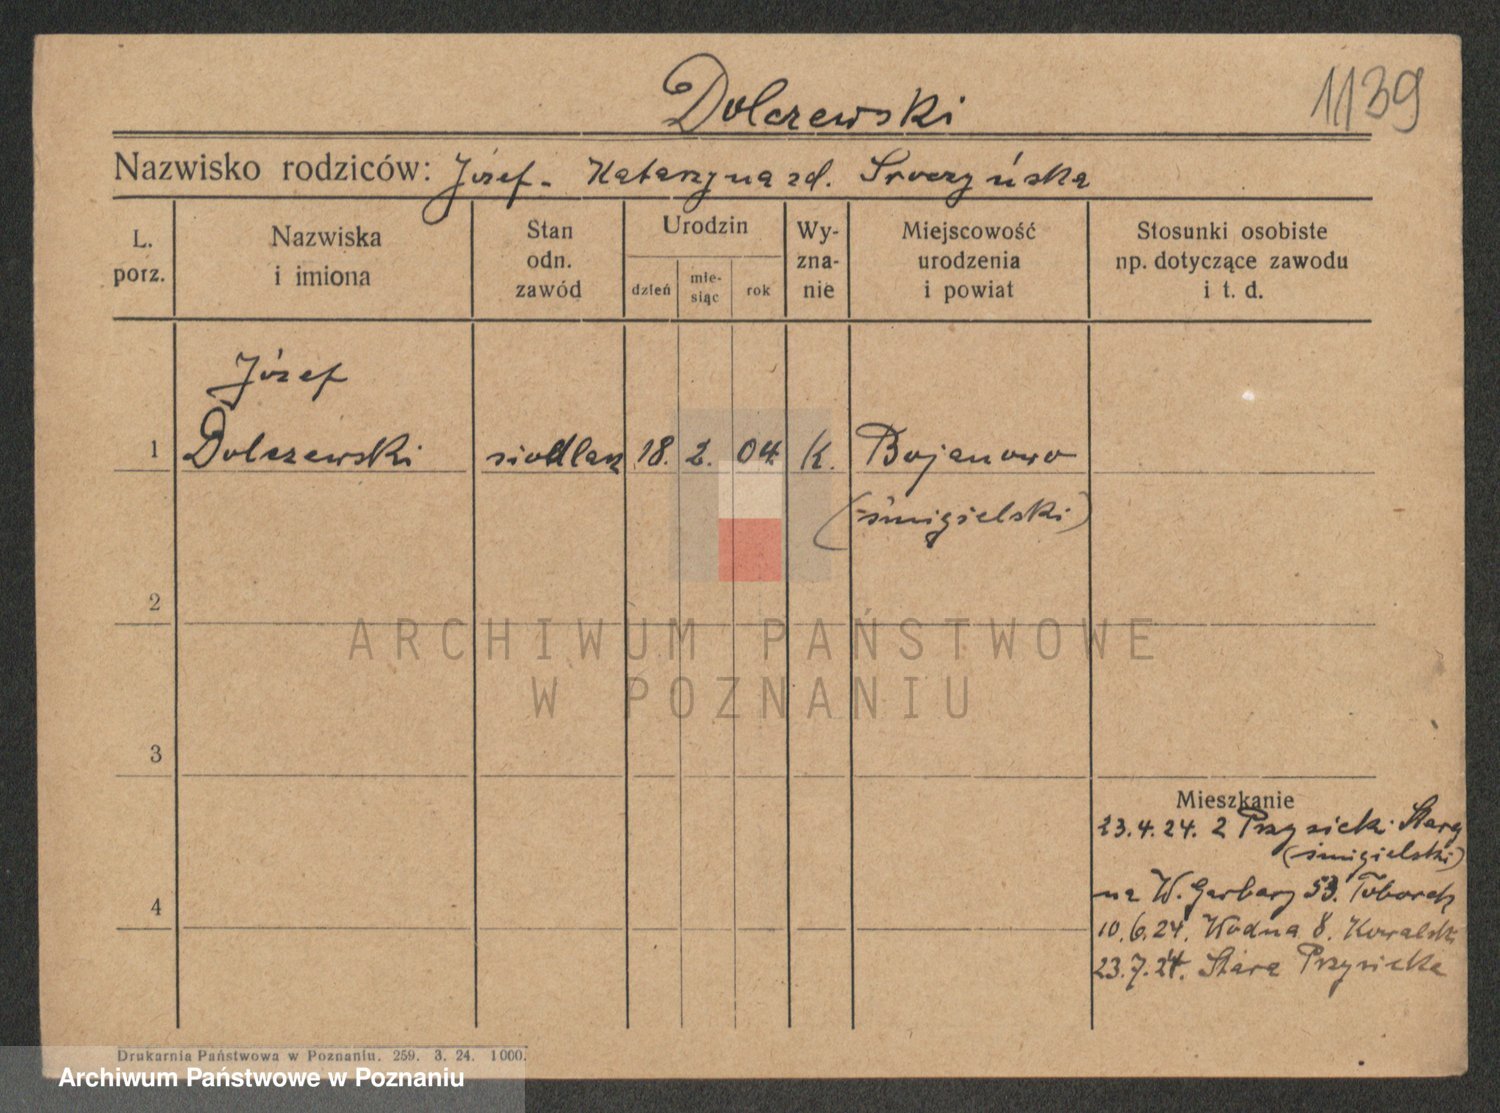 Dolczewski
1139
Nazwisko rodziców: Józef - Katarzyna zd. Sroczyńska
L. porz.
Nazwiska i imiona
Stan odn. zawód
Urodzin
dzień
mie- siąc
rok
Wy- zna- nie
Miejscowość urodzenia i powiat
Stosunki osobiste np. dotyczące zawodu i t. d.
Józef
1 Dolczewski siodlarz 18. 2. 04 k. Bojanowo
(śmigielski)
2
3
4
Mieszkanie
23.4.24. z Przysieki Starej
(śmigielski)
na W. Garbary 53.
10.6.24. Wodna 8. Kowalski
23.7.24. Stara Przysieka
ARCHIWUM PAŃSTWOWE
W POZNANIU
Drukarnia Państwowa w Poznaniu. 259. 3. 24. 1000.
Archiwum Państwowe w Poznaniu